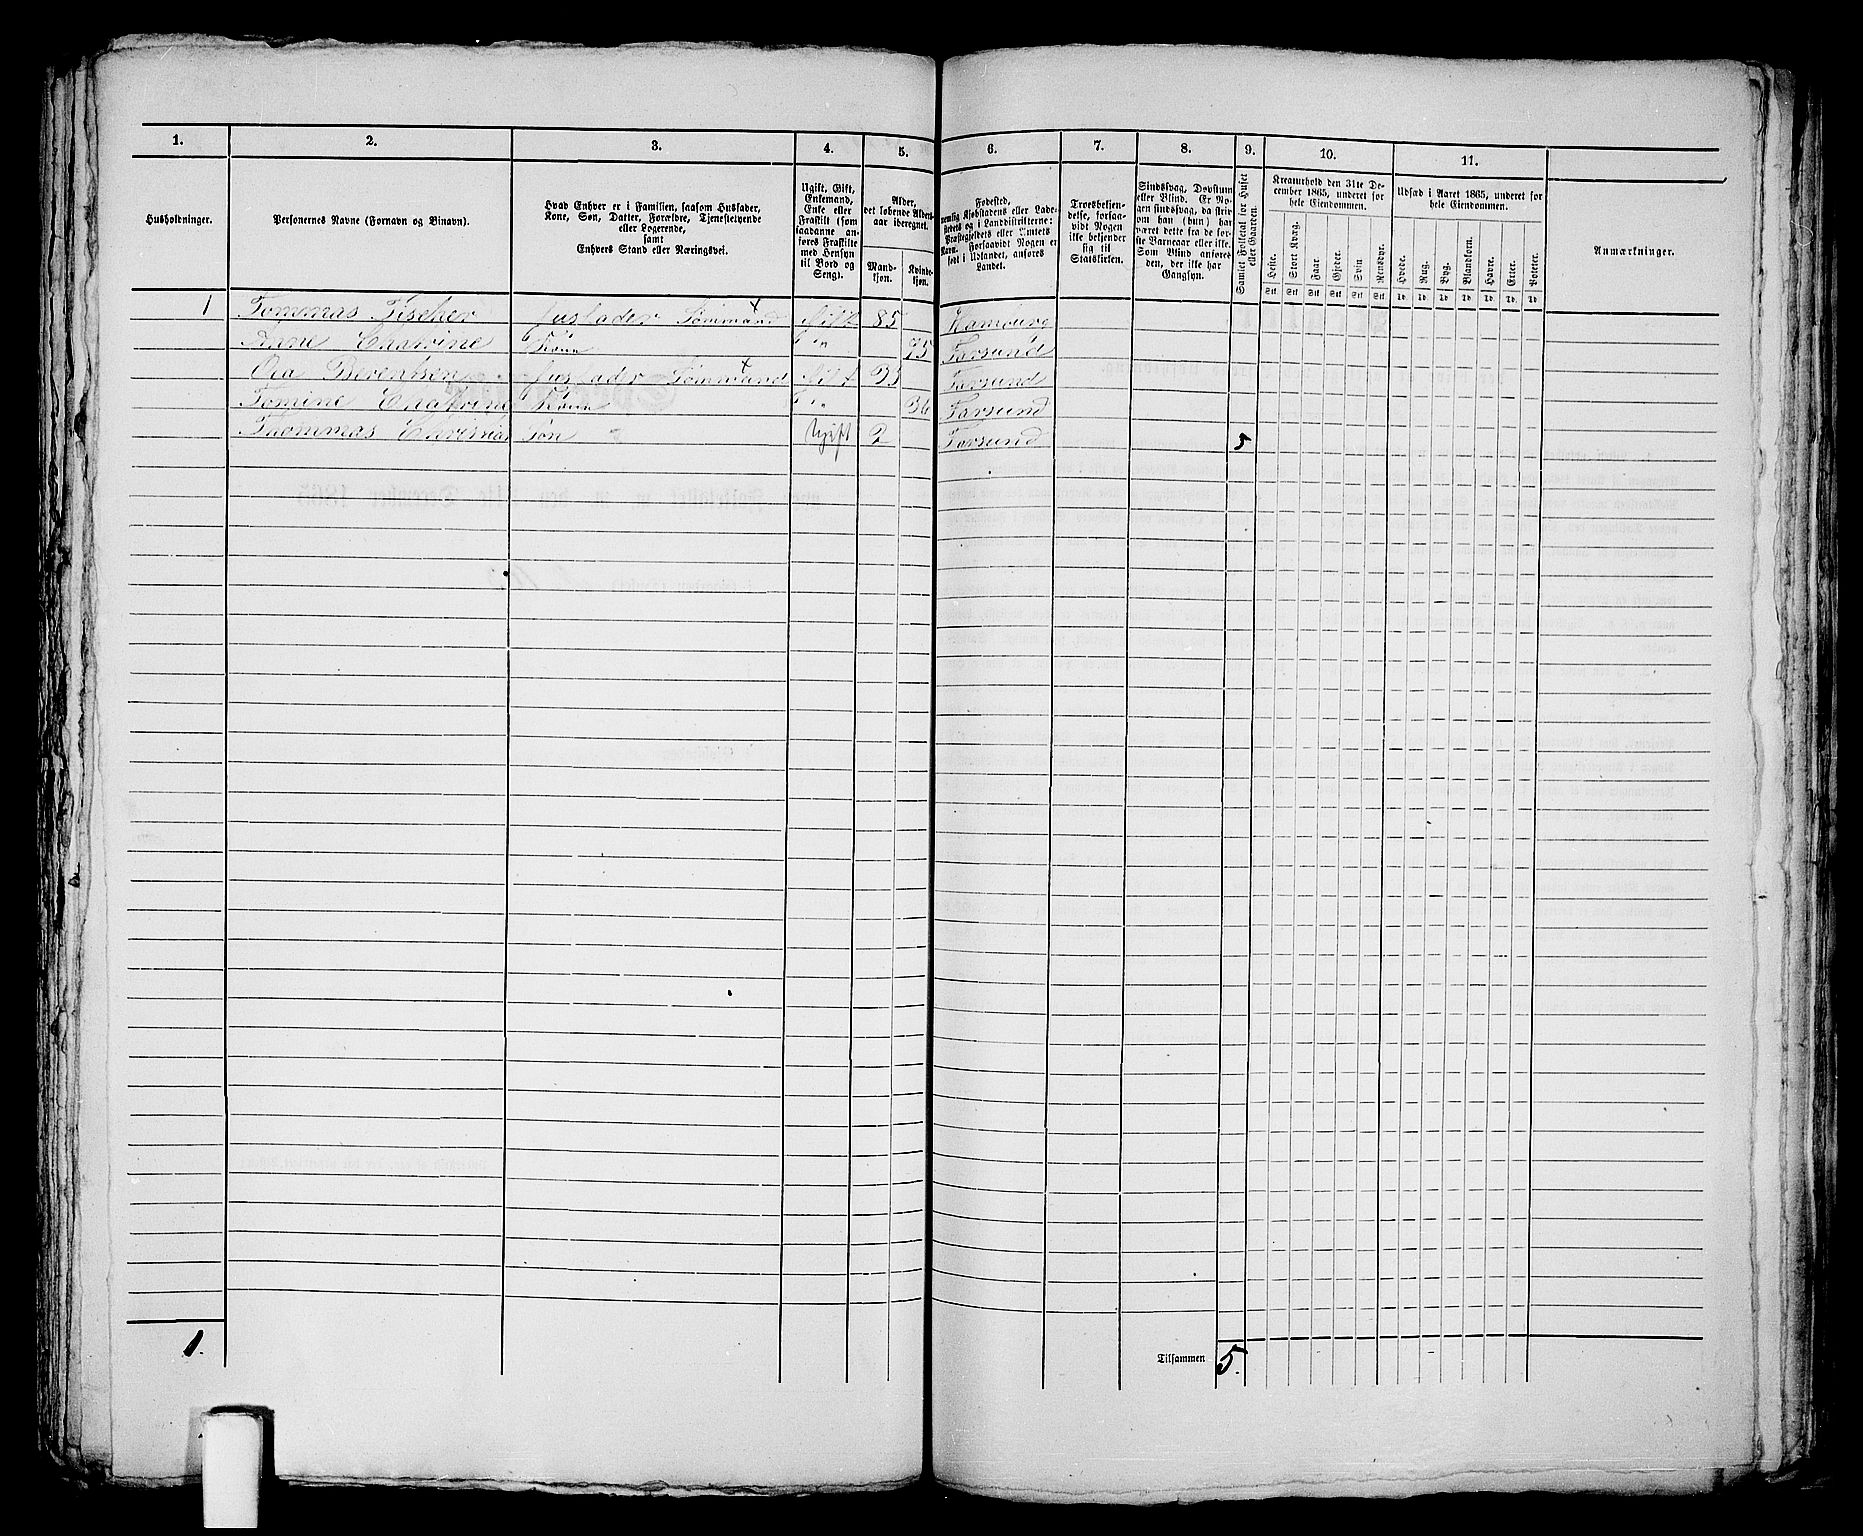 1. 2. 3. 4. 5. 6. 7. 8. 9. 10. 11.
Husholdninger.
Personernes Navne (Fornavn og Binavn).
Hvad Enhver er i Familien, saasom Husfader,
Kone, Søn, Datter, Forældre, Tjenestetyende
eller Logerende,
samt
Enhvers Stand eller Næringsvei.
Ugift, Gift,
Enkemand,
Enke eller
Fraskilt (som
saadanne an-
føres Fraskilte
med Hensyn
til Bord og
Seng).
Alder,
det løbende Alders-
aar iberegnet.
Mand-
kjøn.
Kvinde-
kjøn.
Fødested,
nemlig Kjøbstadens eller Lade-
stedets og i Landdistrikterne:
Præstegjeldets eller Amtets
Navn. Forsaavidt Nogen er
født i Udlandet, anføres
Landet.
Troesbekjen-
delse, forsaa-
vidt Nogen
ikke bekjender
sig til
Statskirken.
Sindssvag, Døvstum
eller Blind. Er No-
gen sindssvag, da skriv
om han (hun) har
været dette fra de før-
ste Barneaar eller ikke.
Som Blind anføres
den, der ikke har
Gangsyn.
Samlet Folketal for Huset
eller Gaarden.
Kreaturhold den 31te De-
cember 1865, underet for
hele Eiendommen.
Heste. Stort Kvæg. Faar Gjeder. Svin Rensdyr.
Stk Stk Stk Stk Stk Stk
Udsæd i Aaret 1865, underet for
hele Eiendommen.
Hvede. Rug. Byg. Blandkorn. Havre. Erter. Poteter.
Td. Td. Td. Td. Td. Td. Td.
Anmærkninger.
1 Tommas Fischer Husfader Sømmand Gift 85 Hamburg
Ane Chatrine Kone 75 Farsund
Ola Berentsen Husfader Sømmand Gift 35 Farsund
Tomine Chatrine Kone 36 Farsund
Thommas Søn Ugift 2 Farsund 5
1.
Tilsammen 5.